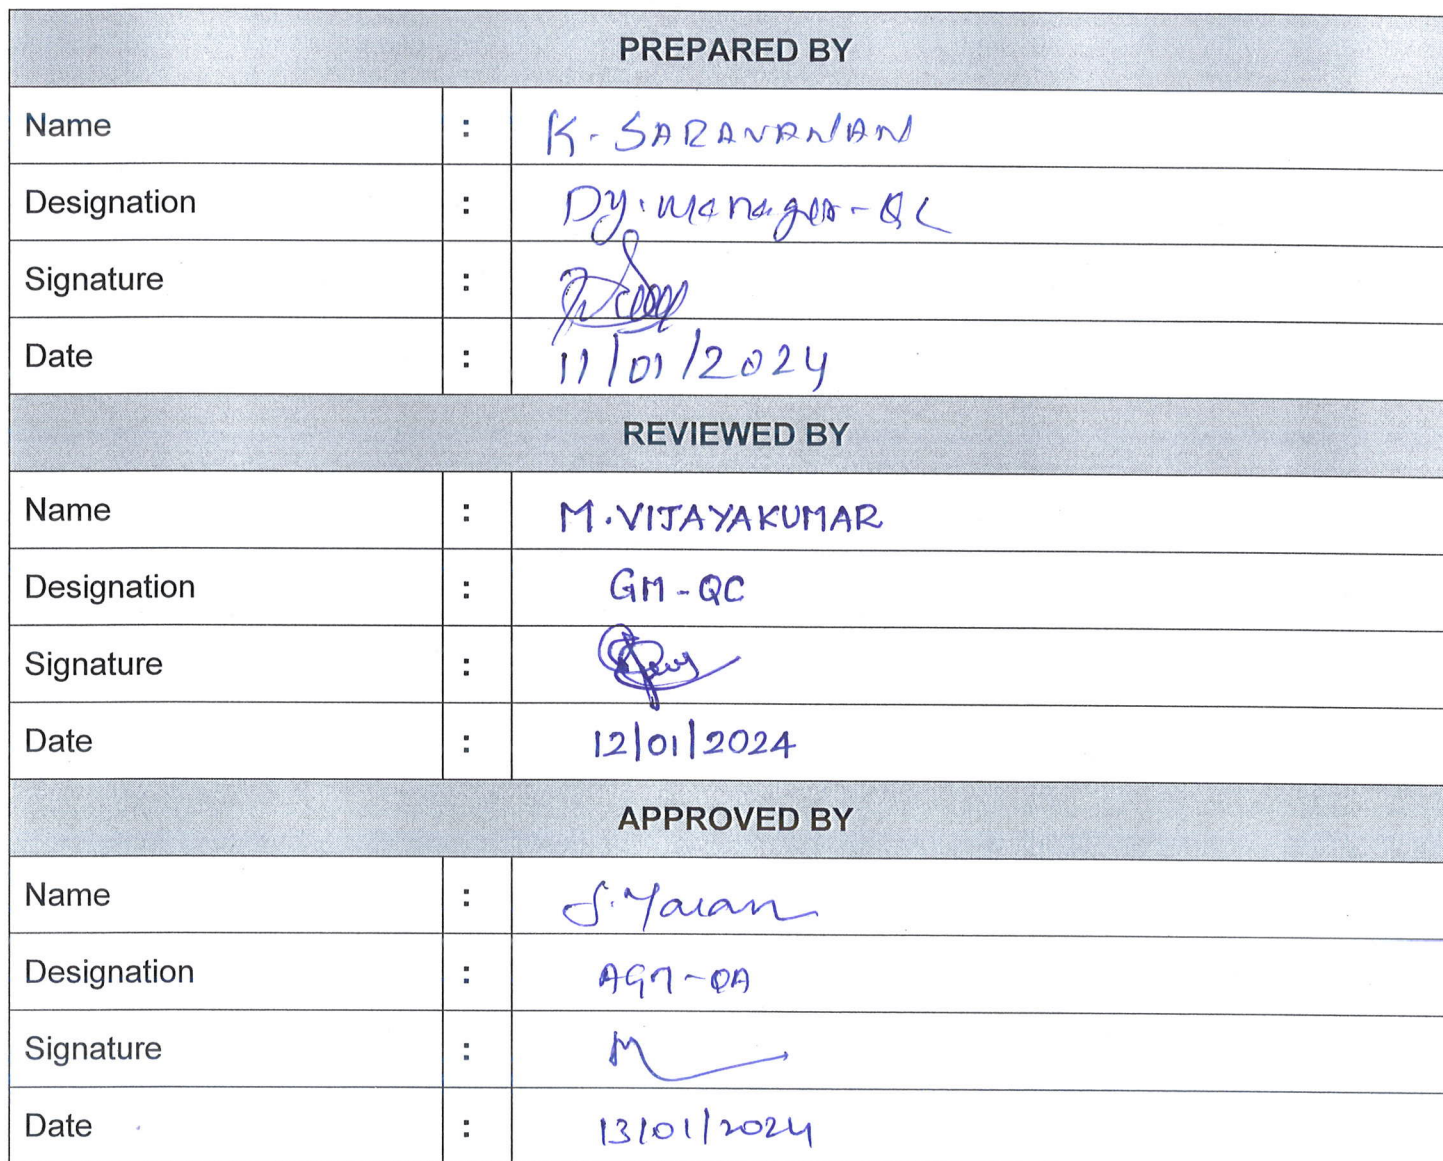 PREPARED BY
Name : K. SARAVANAN
Designation : Dy. Manager - QC
Signature :
Date : 11/01/2024
REVIEWED BY
Name : M. VIJAYAKUMAR
Designation : GM - QC
Signature :
Date : 12/01/2024
APPROVED BY
Name : S.
Designation : AGM - QA
Signature :
Date : 13/01/2024